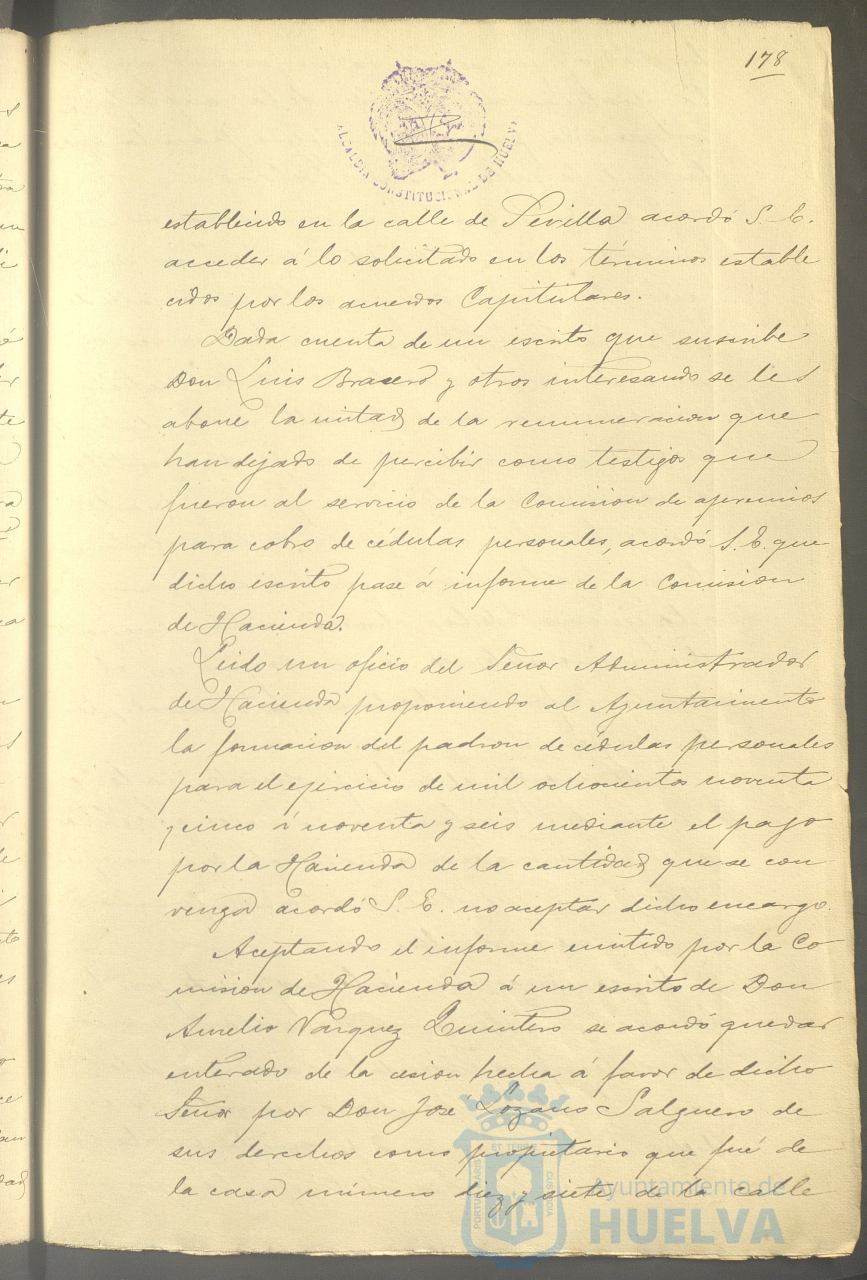 178
ALCALDIA CONSTITUCIONAL DE HUELVA
establecido en la calle de Sevilla acordó S. E.
acceder á lo solicitado en los términos estable
cidos por los acuerdos Capitulares.
Dada cuenta de un escrito que suscribe
Don Luis Bracero y otros interesando se les
abone la mitad de la remuneracion que
han dejado de percibir como testigos que
fueron al servicio de la Comision de apremios
para cobro de cédulas personales, acordó S. E. que
dicho escrito pase á informe de la Comision
de Hacienda.
Leido un oficio del Señor Administrador
de Hacienda proponiendo al Ayuntamiento
la formacion del padron de cédulas personales
para el ejercicio de mil ochocientos noventa
y cinco á noventa y seis mediante el pago
por la Hacienda de la cantidad que se con
venga acordó S. E. no aceptar dicho encargo.
Aceptando el informe emitido por la Co
mision de Hacienda á un escrito de Don
Aurelio Vazquez Quintero se acordó quedar
enterado de la cesion hecha á favor de dicho
Señor por Don José Lozano Salguero de
sus derechos como propietario que fué de
la casa número diez y siete de la calle
PORTUS MARIS ET TERRÆ CUSTODIA
Ayuntamiento de
HUELVA